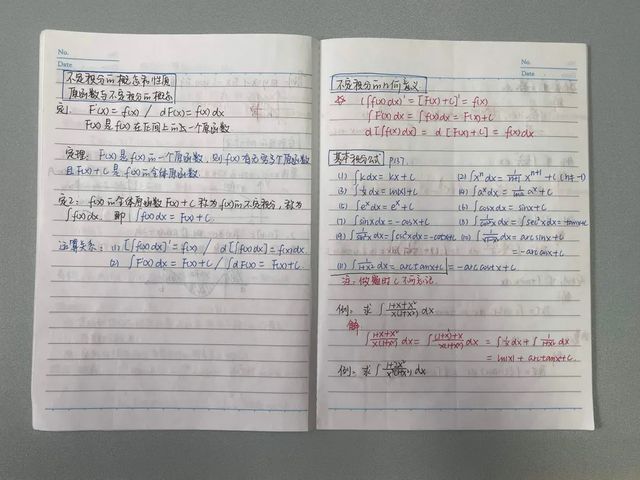 No.
Date
不定积分的概念和性质
原函数与不定积分的概念
定1. F'(x)=f(x) / dF(x)=f(x)dx
F(x)是f(x)在区间上的一个原函数
定理: F(x)是f(x)的一个原函数, 则f(x)有无穷多个原函数
且F(x)+C是f(x)的全体原函数
定2: f(x)的全体原函数F(x)+C称为f(x)的不定积分, 记为
∫f(x)dx. 即 ∫f(x)dx = F(x)+C.
运算关系: (1) [∫f(x)dx]' = f(x) / d[∫f(x)dx] = f(x)dx.
(2) ∫F'(x)dx = F(x)+C / ∫dF(x) = F(x)+C.
No.
Date
不定积分的几何意义
(∫f(x)dx)' = [F(x)+C]' = f(x)
∫F'(x)dx = ∫f(x)dx = F(x)+C
d[∫f(x)dx] = d[F(x)+C] = f(x)dx
基本积分公式 P137.
(1) ∫kdx = kx+C (2) ∫xⁿdx = 1/(n+1) xⁿ⁺¹ +C (n≠-1)
(3) ∫1/x dx = ln|x|+C (4) ∫aˣdx = 1/lna aˣ+C
(5) ∫eˣdx = eˣ+C (6) ∫cosxdx = sinx+C
(7) ∫sinxdx = -cosx+C (8) ∫1/cos²x dx = ∫sec²xdx = tanx+C
(9) ∫1/sin²x dx = ∫csc²xdx = -cotx+C (10) ∫1/√(1-x²) dx = arcsinx+C
= -arccosx+C
(11) ∫1/(1+x²) dx = arctanx+C = -arccotx+C
注: 做题时C不可忘记.
例: 求∫(1+x+x²)/(x(1+x²)) dx
解
∫(1+x+x²)/(x(1+x²)) dx = ∫((1+x²)+x)/(x(1+x²)) dx = ∫1/x dx + ∫1/(1+x²) dx
= ln|x| + arctanx+C.
例: 求∫(1+2x²)/(x²(1+x²)) dx